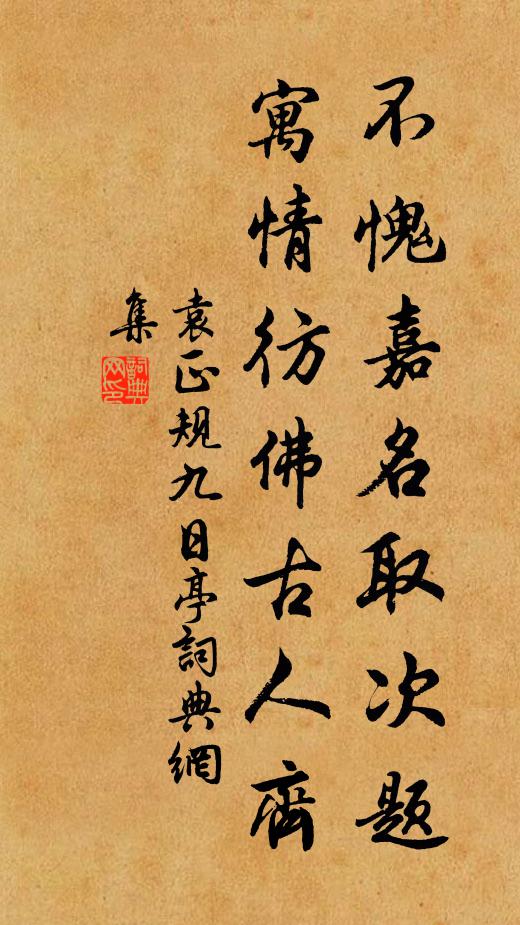 不愧嘉名取次題
寓情彷佛古人齊
袁正规九日亭詞典網
集
詞典网印